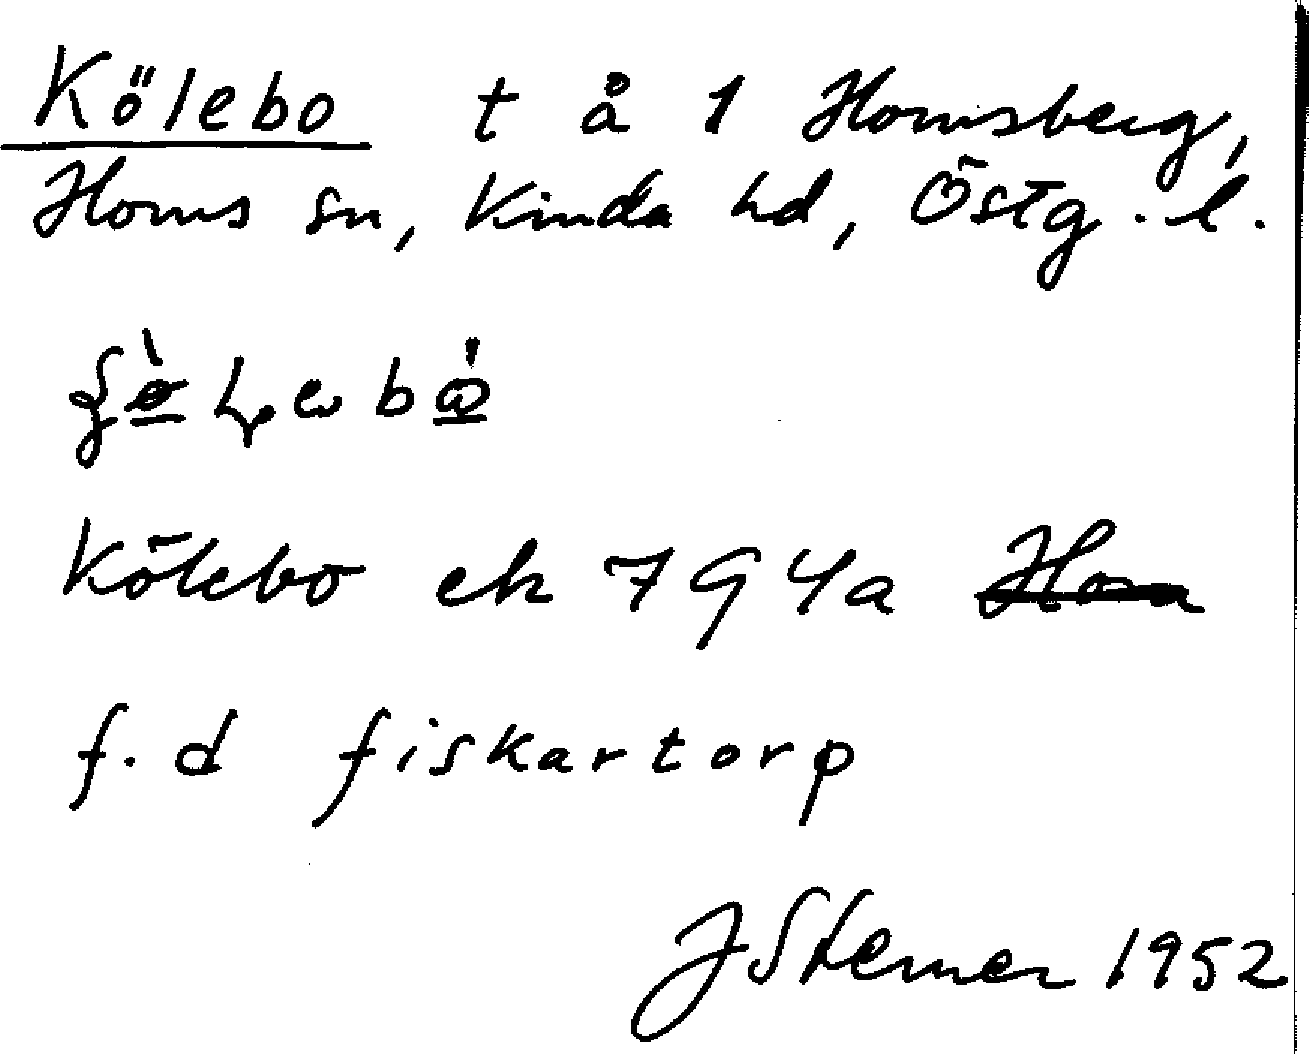 Kölebo t å 1 Hornsberg,
Horns sn, Kinda hd, Östg. l.
Kölebo ek 794a
f.d fiskartorp
J Sterner 1952